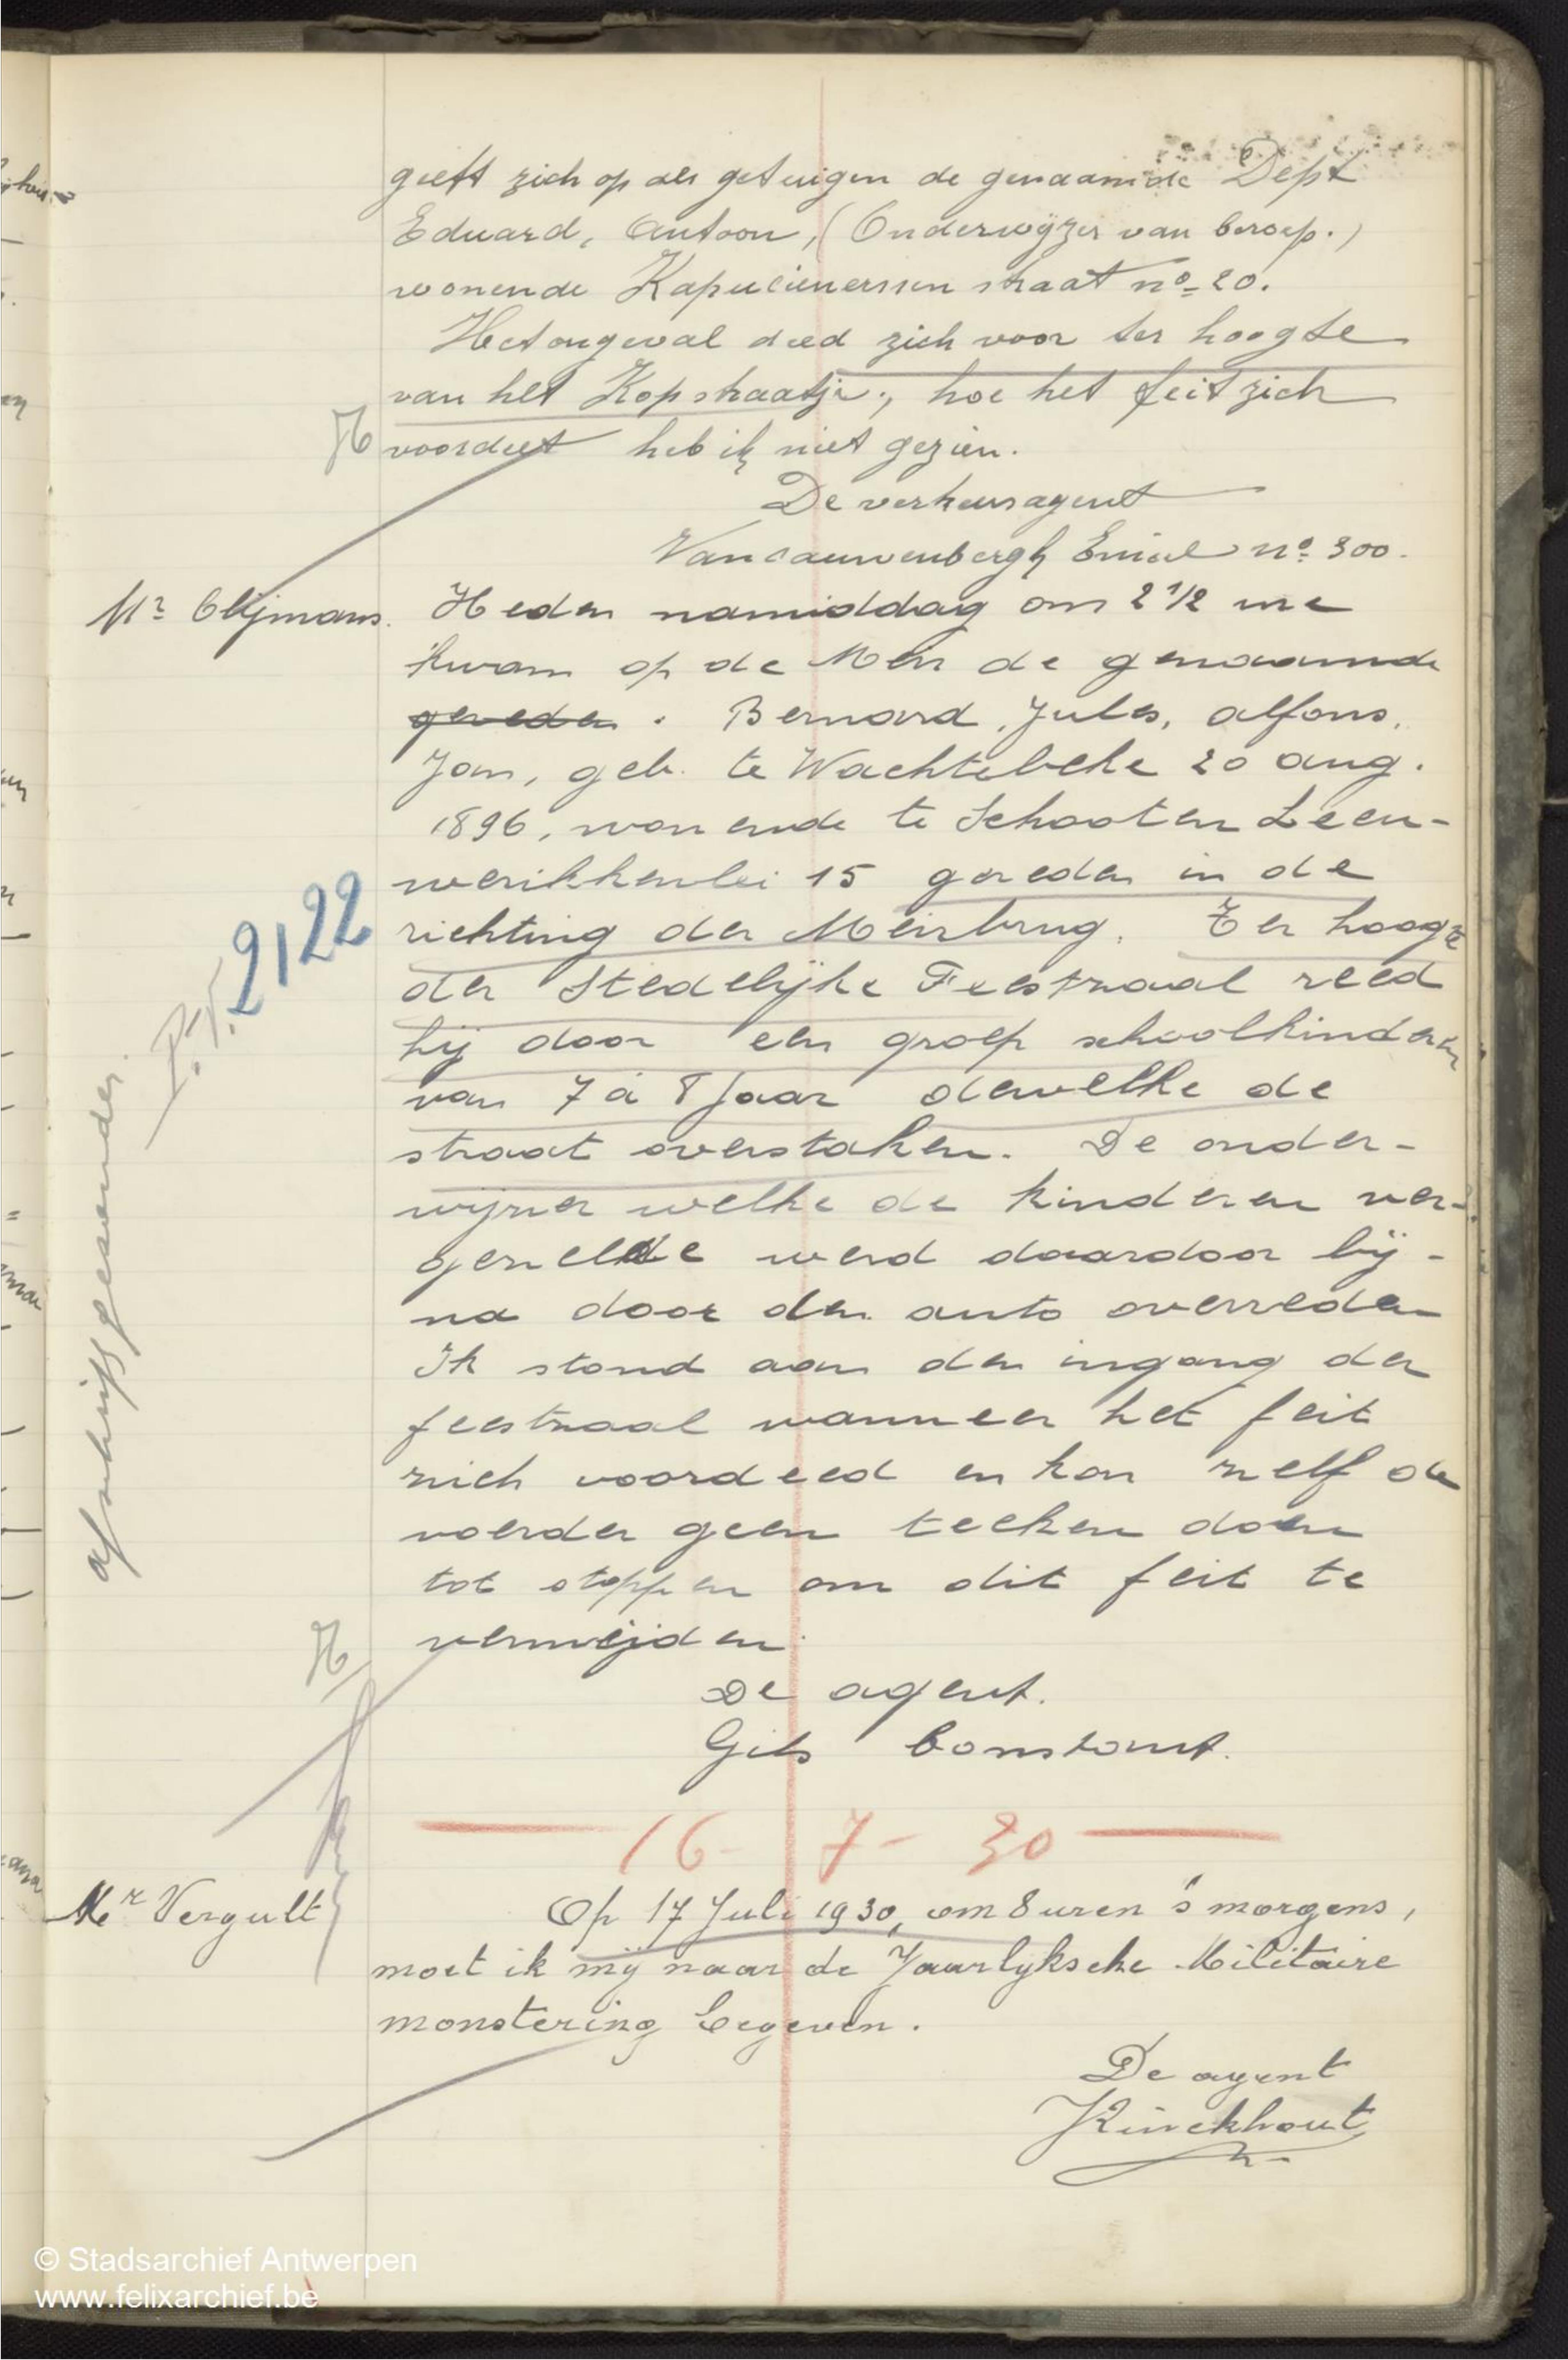 geeft zich op als getuigen de genaamde Dept
Eduard, Antoon, (Onderwÿzer van beroep.)
wonende Kapucienerssen straat nº 20.
Het ongeval deed zich voor ter hoogte
van het Kopstraatje, hoe het feit zich
voordeet heb ik niet gezien.
De verkeersagent
Vancauwenbergh Emiel nº 300.
Mr Clÿmans.
Heden namiddag om 2 1/2 ure
kwam op de Meir de genaamde
gereden . Bernard, Jules, Alfons,
Jan, geb. te Wachtebeke 20 aug.
1896, wonende te Schooten Leeu-
werikkenlei 15 gereden in de
richting der Meirbrug. Ter hoogte
der Stedelÿke Feestzaal reed
hij door een groep schoolkinderen
van 7 à 8 jaar dewelke de
straat overstaken. De onder-
wijzer welke de kinderen ver-
gezelde werd daardoor bij-
na door den auto overreden
Ik stond aan den ingang der
feestzaal wanneer het feit
zich voordeed en kon zelf de
voerder geen teeken doen
tot stoppen om dit feit te
vermeijden.
De agent.
Gils Constant.
P.V. 2122
afschrift gezonden
16 - 7 - 30
Mer Vergult
Op 17 Juli 1930, om 8 uren 's morgens,
moet ik mÿ naar de Jaarlykscke Militaire
monstering begeven.
De agent
Kinckhout
© Stadsarchief Antwerpen
www.felixarchief.be